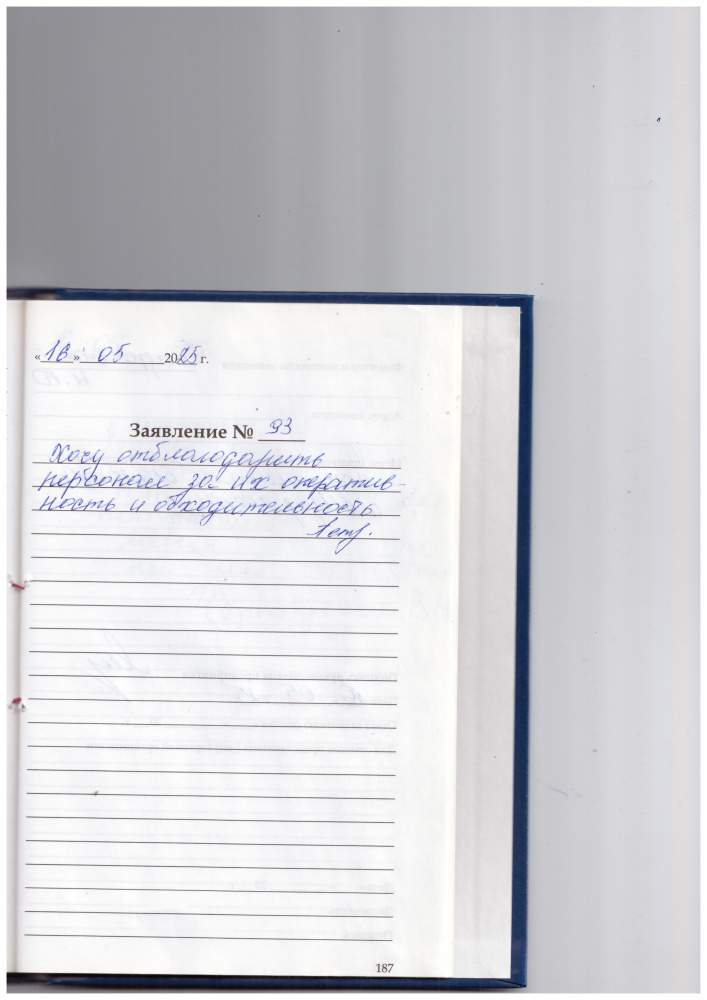 «16» 05 2025 г.
Заявление № 93
Хочу отблагодарить
персонал за их оператив-
ность и обходительность
187